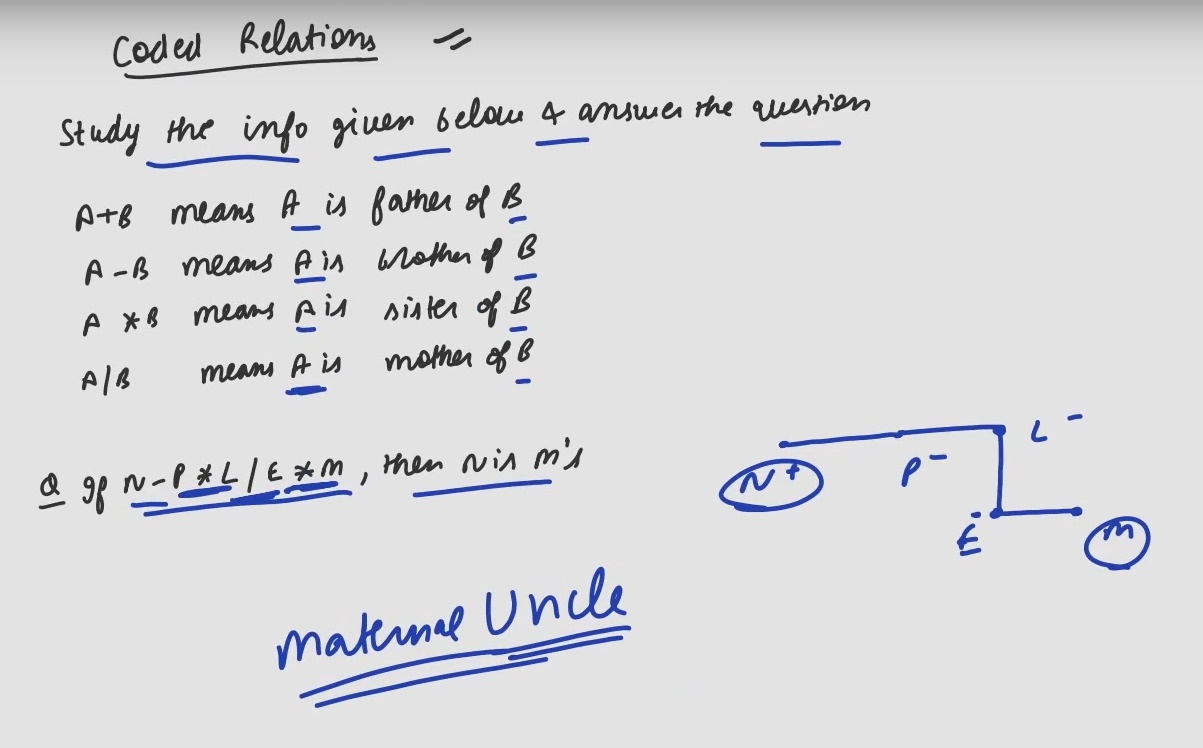 Coded Relations =
Study the info given below & answer the question
A+B means A is father of B
A-B means A is brother of B
A *B means A is sister of B
A/B means A is mother of B
Q If N-P*L/E*M, then N is M's
N+ P- L-
E- M
Maternal Uncle